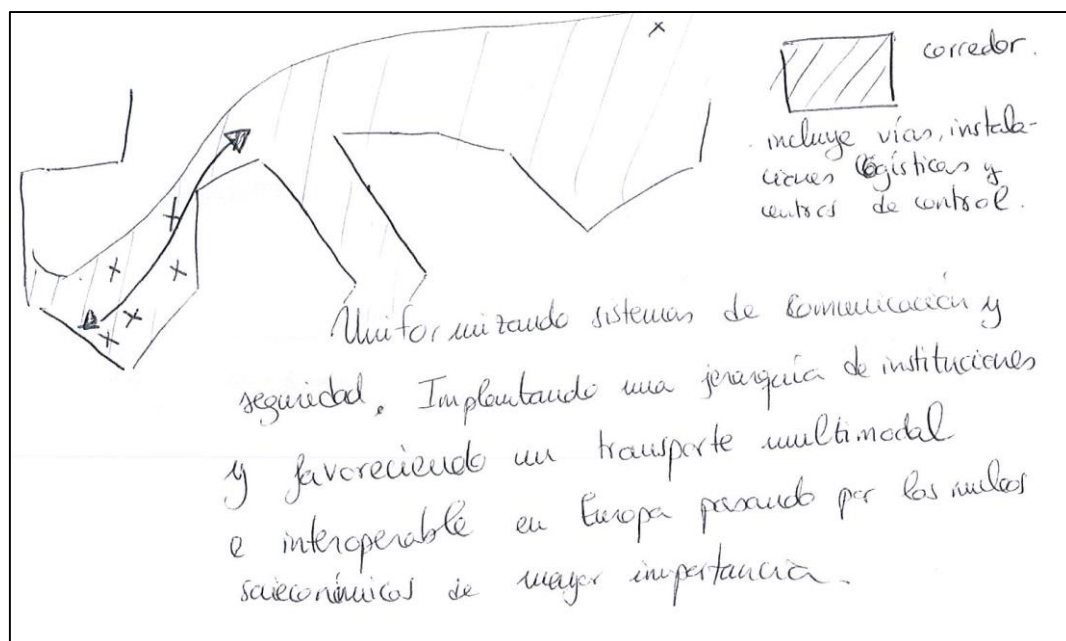 corredor.
incluye vías, instala-
ciones logísticas y
centros de control.
Uniformizando sistemas de comunicación y
seguridad. Implantando una jerarquía de instituciones
y favoreciendo un transporte multimodal
e interoperable en Europa pasando por los nucleos
socieconómicos de mayor importancia.